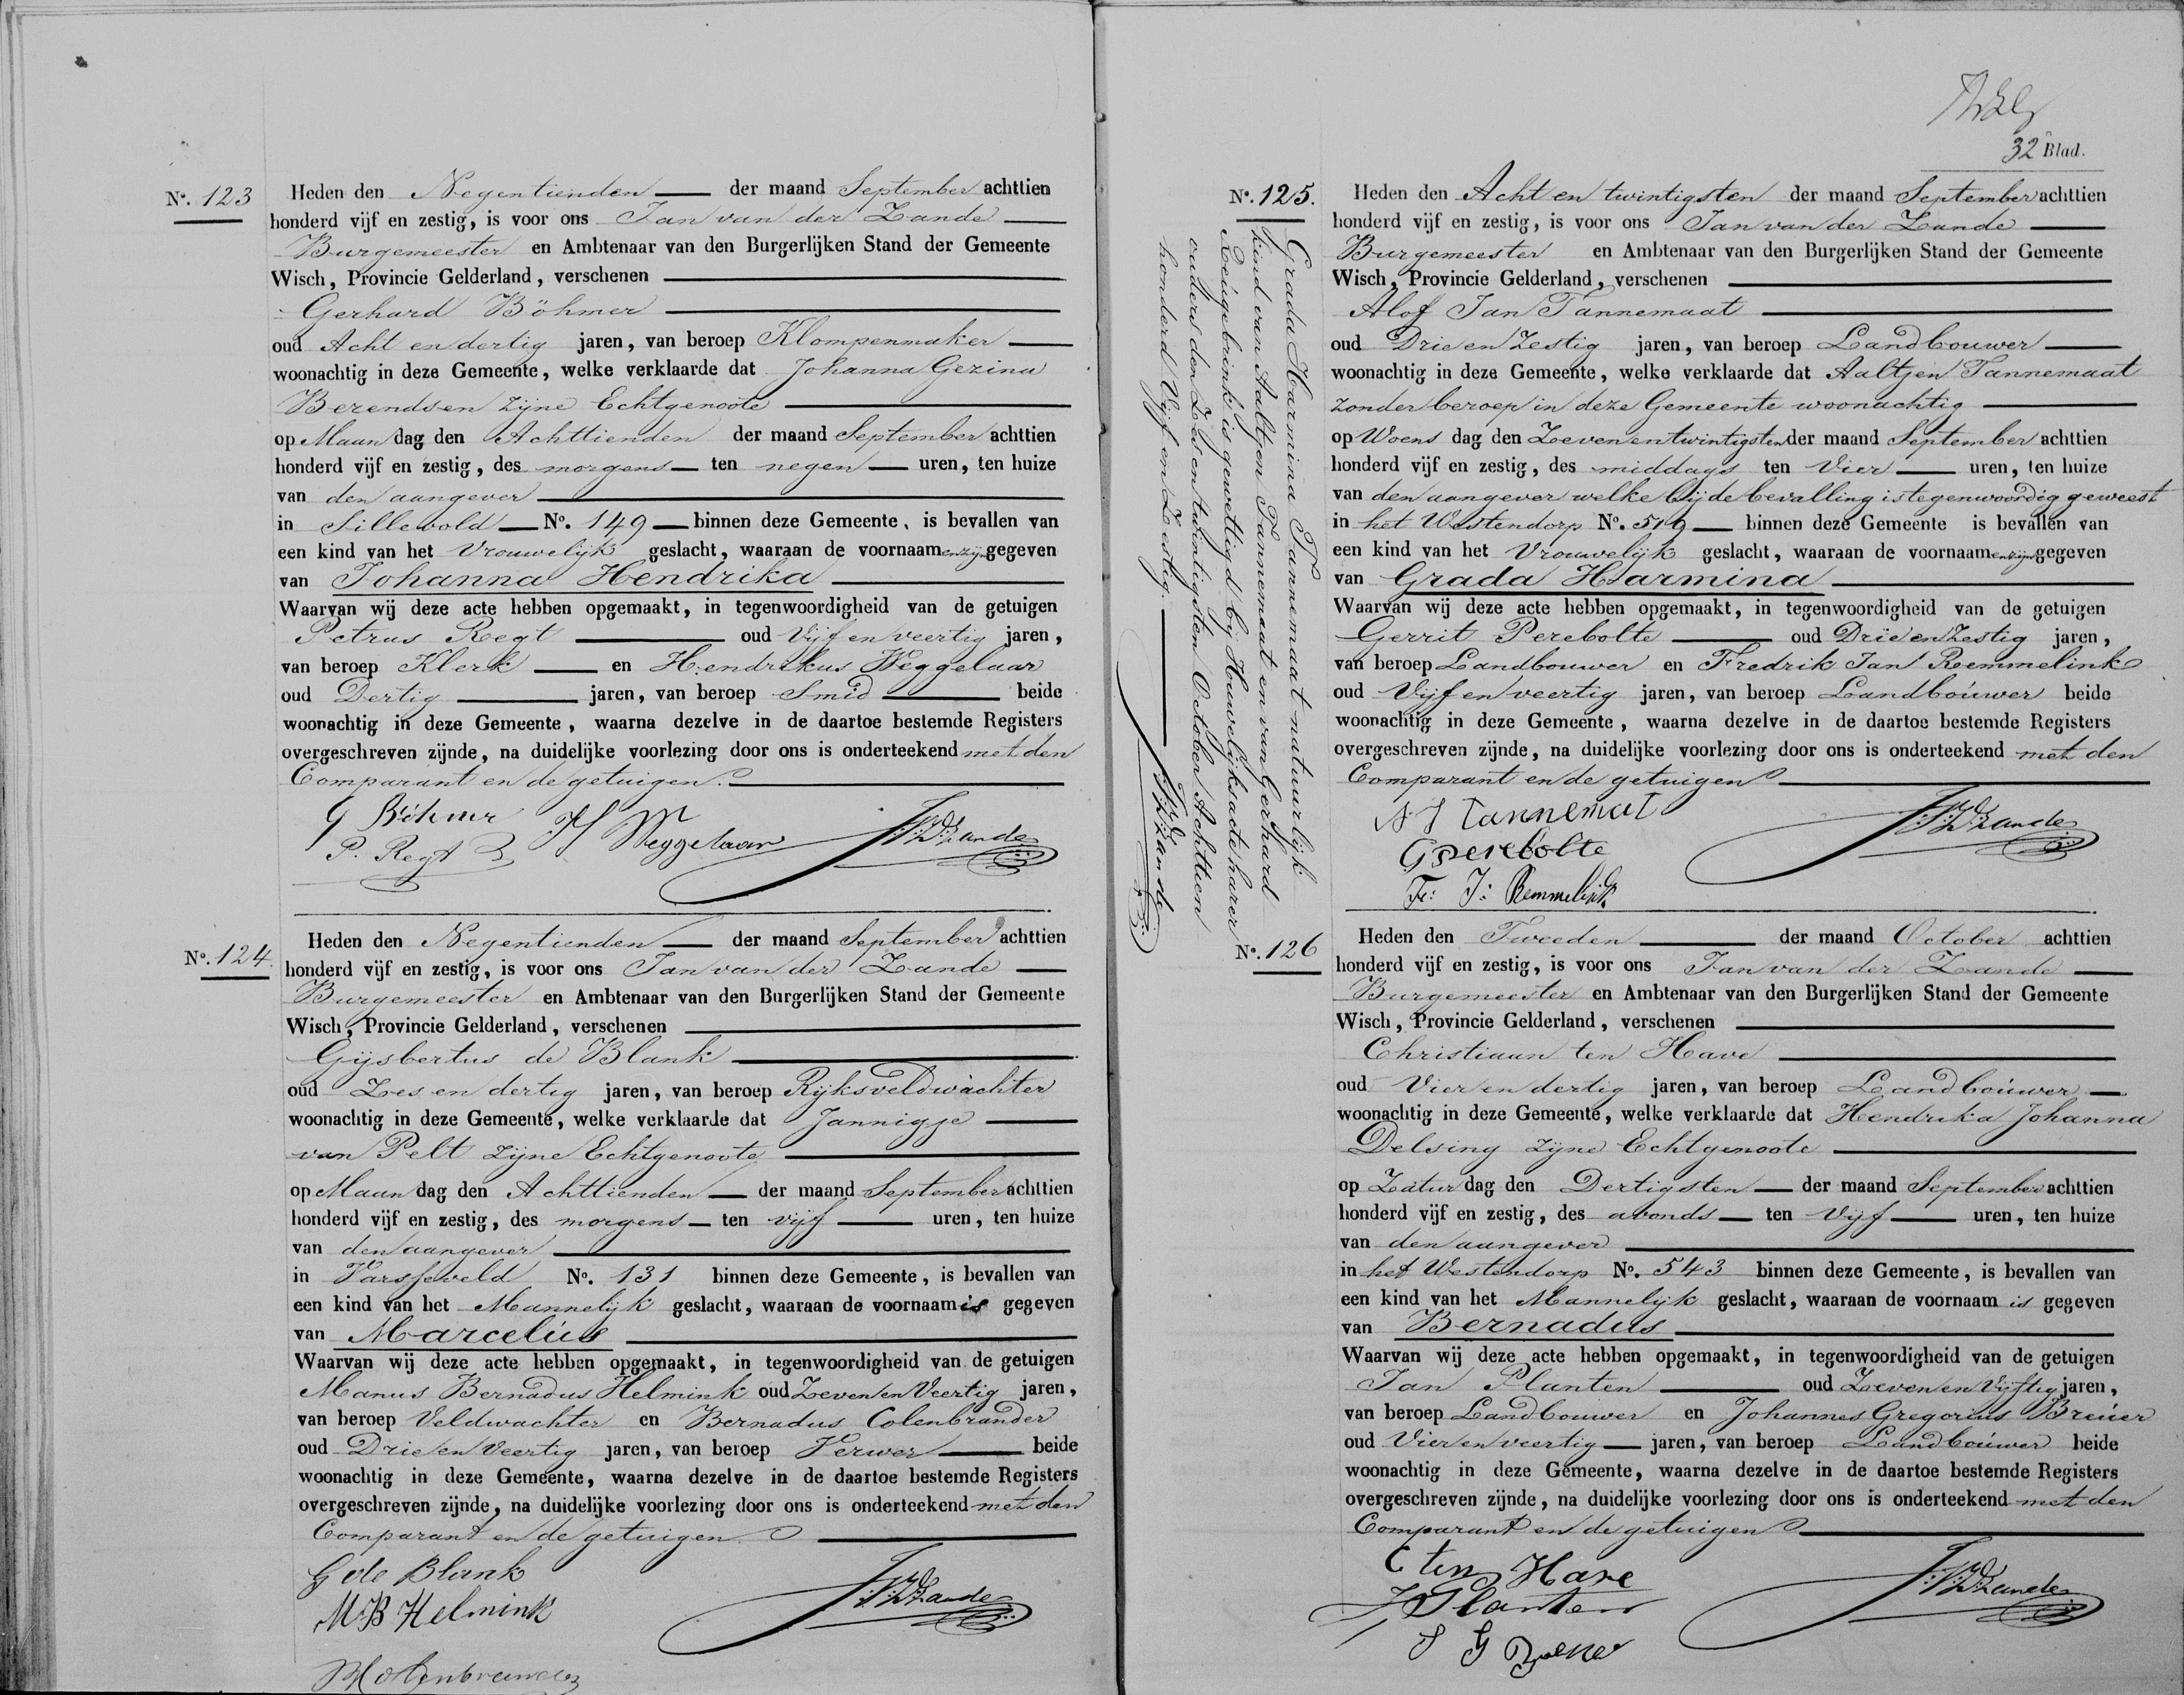 No. 123
Heden den Negentienden der maand September achttien
honderd vijf en zestig, is voor ons Jan van der Zande
Burgemeester en Ambtenaar van den Burgerlijken Stand der Gemeente
Wisch, Provincie Gelderland, verschenen
Gerhard Böhmer
oud Acht en dertig jaren, van beroep Klompenmaker
woonachtig in deze Gemeente, welke verklaarde dat Johanna Gezina
Berendsen zijne Echtgenoote
op Maandag den Achttienden der maand September achttien
honderd vijf en zestig, des morgens ten negen uren, ten huize
van den aangever
in Sillevold No. 149 binnen deze Gemeente, is bevallen van
een kind van het Vrouwelijk geslacht, waaraan de voornaamen zijn gegeven
van Johanna Hendrika
Waarvan wij deze acte hebben opgemaakt, in tegenwoordigheid van de getuigen
Petrus Regt oud Vijf en veertig jaren,
van beroep Klerk en Hendrikus Weggelaar
oud Dertig jaren, van beroep Smid beide
woonachtig in deze Gemeente, waarna dezelve in de daartoe bestemde Registers
overgeschreven zijnde, na duidelijke voorlezing door ons is onderteekend met den
Comparant en de getuigen.
G Böhmer H Weggelaar JVDZande
P. Regt
No. 124.
Heden den Negentienden der maand September achttien
honderd vijf en zestig, is voor ons Jan van der Zande
Burgemeester en Ambtenaar van den Burgerlijken Stand der Gemeente
Wisch, Provincie Gelderland, verschenen
Gijsbertus de Blank
oud Zes en dertig jaren, van beroep Rijksveldwachter
woonachtig in deze Gemeente, welke verklaarde dat Jannigje
van Pelt zijne Echtgenoote
op Maandag den Achttienden der maand September achttien
honderd vijf en zestig, des morgens ten vijf uren, ten huize
van den aangever
in Varsseveld No. 131 binnen deze Gemeente, is bevallen van
een kind van het Mannelijk geslacht, waaraan de voornaam is gegeven
van Marcelius
Waarvan wij deze acte hebben opgemaakt, in tegenwoordigheid van de getuigen
Manus Bernadus Helmink oud Zeven en Veertig jaren,
van beroep Veldwachter en Bernadus Colenbrander
oud Drie en Veertig jaren, van beroep Verwer beide
woonachtig in deze Gemeente, waarna dezelve in de daartoe bestemde Registers
overgeschreven zijnde, na duidelijke voorlezing door ons is onderteekend met den
Comparant en de getuigen
G de Blank
MB Helmink JVDZande
B Colenbrander
32 Blad.
No. 125.
Heden den Acht en twintigsten der maand September achttien
honderd vijf en zestig, is voor ons Jan van der Zande
Burgemeester en Ambtenaar van den Burgerlijken Stand der Gemeente
Wisch, Provincie Gelderland, verschenen
Alof Jan Tannemaat
oud Drie en Zestig jaren, van beroep Landbouwer
woonachtig in deze Gemeente, welke verklaarde dat Aaltjen Tannemaat
zonder beroep in deze Gemeente woonachtig
op Woensdag den Zeven en twintigsten der maand September achttien
honderd vijf en zestig, des middags ten Vier uren, ten huize
van den aangever welke bij de bevalling is tegenwoordig geweest
in het Westendorp No. 519 binnen deze Gemeente is bevallen van
een kind van het Vrouwelijk geslacht, waaraan de voornaamen zijn gegeven
van Grada Harmina
Waarvan wij deze acte hebben opgemaakt, in tegenwoordigheid van de getuigen
Gerrit Perebolte oud Drie en Zestig jaren,
van beroep Landbouwer en Fredrik Jan Remmelink
oud Vijf en veertig jaren, van beroep Landbouwer beide
woonachtig in deze Gemeente, waarna dezelve in de daartoe bestemde Registers
overgeschreven zijnde, na duidelijke voorlezing door ons is onderteekend met den
Comparant en de getuigen
A J Tannemat
GPerebolte JVDZande
Fr: J: Remmelink
Grada Harmina Tannemaat natuurlijk
kind van Aaltjen Tannemaat en van Gerhard
Reugebrink is gewettigd bij Huwelijksacte harer
ouders den Zes en twintigsten October Achttien
honderd Vijf en Zestig.
JVDZande
No. 126
Heden den Tweeden der maand October achttien
honderd vijf en zestig, is voor ons Jan van der Zande
Burgemeester en Ambtenaar van den Burgerlijken Stand der Gemeente
Wisch, Provincie Gelderland, verschenen
Christiaan ten Have
oud Vier en dertig jaren, van beroep Landbouwer
woonachtig in deze Gemeente, welke verklaarde dat Hendrika Johanna
Delsing zijne Echtgenoote
op Zaturdag den Dertigsten der maand September achttien
honderd vijf en zestig, des avonds ten Vijf uren, ten huize
van den aangever
in het Westendorp No. 543 binnen deze Gemeente, is bevallen van
een kind van het Mannelijk geslacht, waaraan de voornaam is gegeven
van Bernadus
Waarvan wij deze acte hebben opgemaakt, in tegenwoordigheid van de getuigen
Jan Planten oud Zeven en Vijftig jaren,
van beroep Landbouwer en Johannes Gregorius Breuer
oud Vier en veertig jaren, van beroep Landbouwer beide
woonachtig in deze Gemeente, waarna dezelve in de daartoe bestemde Registers
overgeschreven zijnde, na duidelijke voorlezing door ons is onderteekend met den
Comparant en de getuigen
C ten Have
J Planten JVDZande
J G